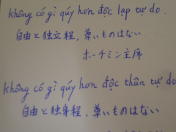 không có gì quý hơn độc lập tự do.
自由と独立程、尊いものはない
ホーチミン主席
không có gì quý hơn độc thân tự do.
自由と独身程、尊いものはない